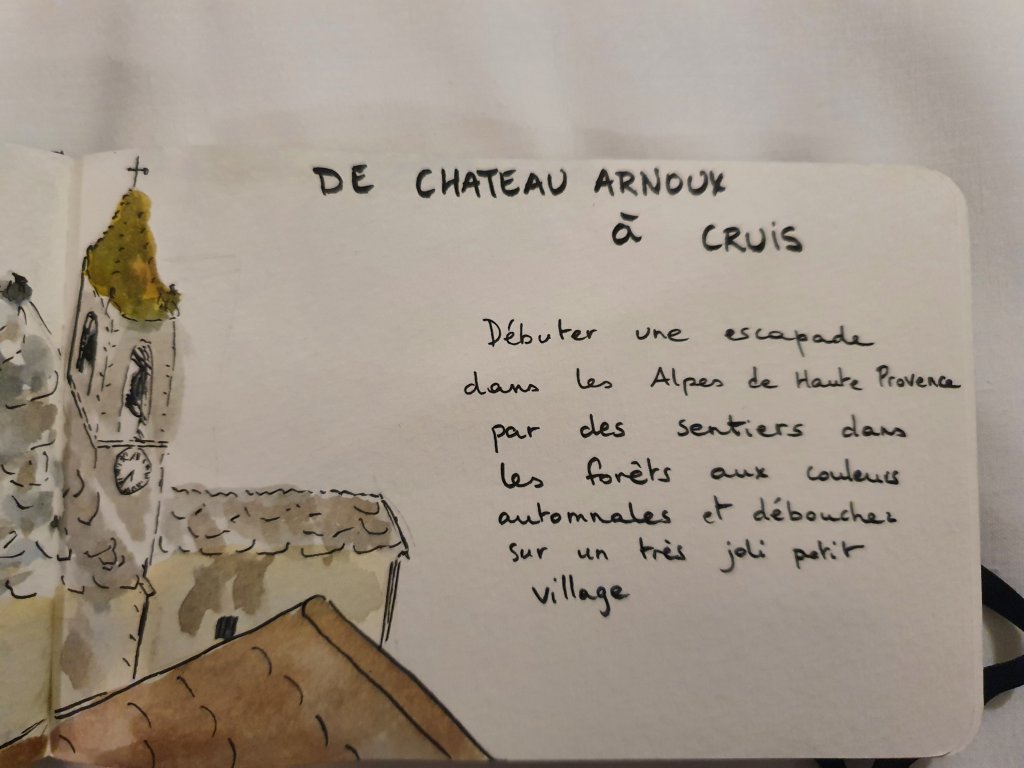 DE CHATEAU ARNOUX
à CRUIS
Débuter une escapade
dans les Alpes de Haute Provence
par des sentiers dans
les forêts aux couleurs
automnales et déboucher
sur un très joli petit
village